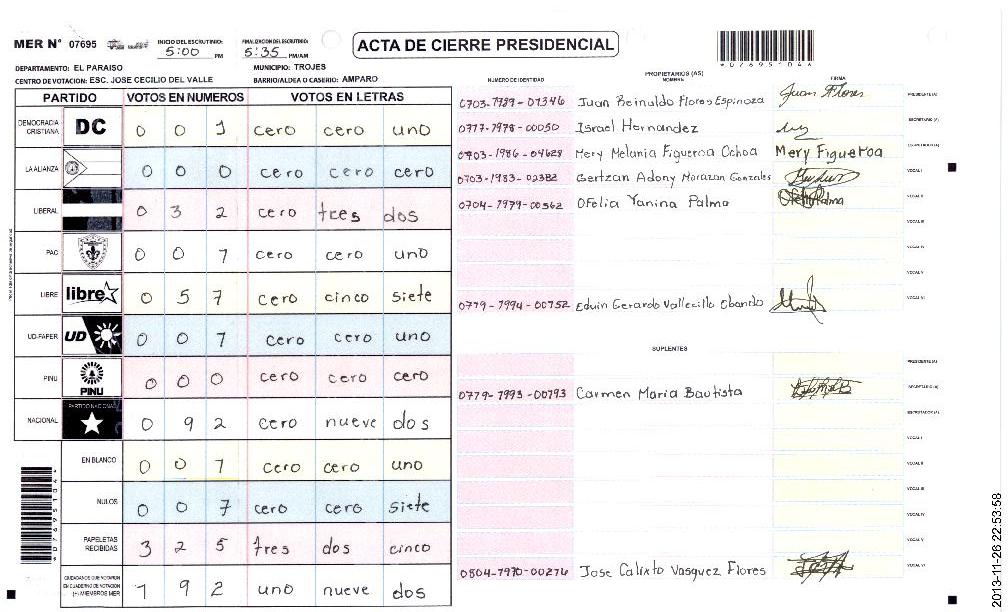 MER N° 07695
INICIO DEL ESCRUTINIO: 5:00 PM
FINALIZACION DEL ESCRUTINIO: 5:35 PM/AM
ACTA DE CIERRE PRESIDENCIAL
*076951044
DEPARTAMENTO: EL PARAISO
MUNICIPIO: TROJES
CENTRO DE VOTACION: ESC. JOSE CECILIO DEL VALLE
BARRIO/ALDEA O CASERIO: AMPARO
PARTIDO VOTOS EN NUMEROS VOTOS EN LETRAS
DEMOCRACIA CRISTIANA DC 0 0 1 cero cero uno
LA ALIANZA 0 0 0 cero cero cero
LIBERAL 0 3 2 cero tres dos
PAC 0 0 1 cero cero uno
LIBRE libre 0 5 7 cero cinco siete
UD-FAPER UD 0 0 1 cero cero uno
PINU PINU 0 0 0 cero cero cero
NACIONAL PARTIDO NACIONAL 0 9 2 cero nueve dos
EN BLANCO 0 0 1 cero cero uno
NULOS 0 0 7 cero cero siete
PAPELETAS RECIBIDAS 3 2 5 tres dos cinco
CIUDADANOS QUE VOTARON EN CUADERNO DE VOTACION (+) MIEMBROS MER 1 9 2 uno nueve dos
NUMERO DE IDENTIDAD PROPIETARIOS (AS) NOMBRE FIRMA
Juan Reinaldo Flores Espinoza Juan Flores PRESIDENTE (A)
Israel Hernandez SECRETARIO (A)
0703-1986-04628 Mery Melania Figueroa Ochoa Mery Figueroa ESCRUTADOR (A)
0703-1983-02382 Gertzan Adony Morazan Gonzales VOCAL I
0704-1979-00562 Ofelia Yanina Palma Ofelia Palma VOCAL II
VOCAL III
VOCAL IV
VOCAL V
Eduin Gerardo Vallecillo Obando VOCAL VI
SUPLENTES
PRESIDENTE (A)
Carmen Maria Bautista SECRETARIO (A)
ESCRUTADOR (A)
VOCAL I
VOCAL II
VOCAL III
VOCAL IV
VOCAL V
Jose Calixto Vasquez Flores VOCAL VI
2013-11-26 22:53:58